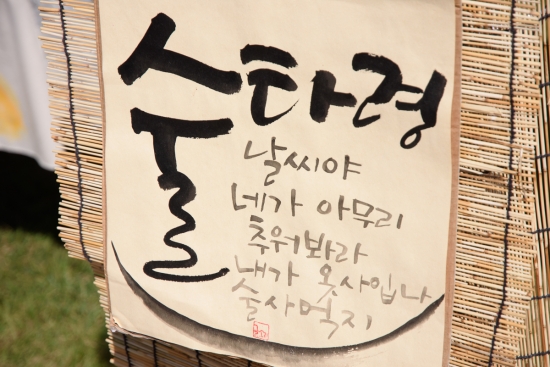 술타령
날씨야
네가 아무리
추워봐라
내가 옷사입나
술사먹지